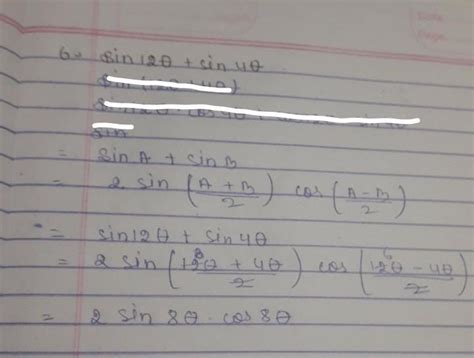 6. sin 12θ + sin 4θ
sin
= sin A + sin B
= 2 sin (A + B / 2) cos (A - B / 2)
= sin 12θ + sin 4θ
= 2 sin (12θ + 4θ / 2) cos (12θ - 4θ / 2)
= 2 sin 8θ . cos 8θ